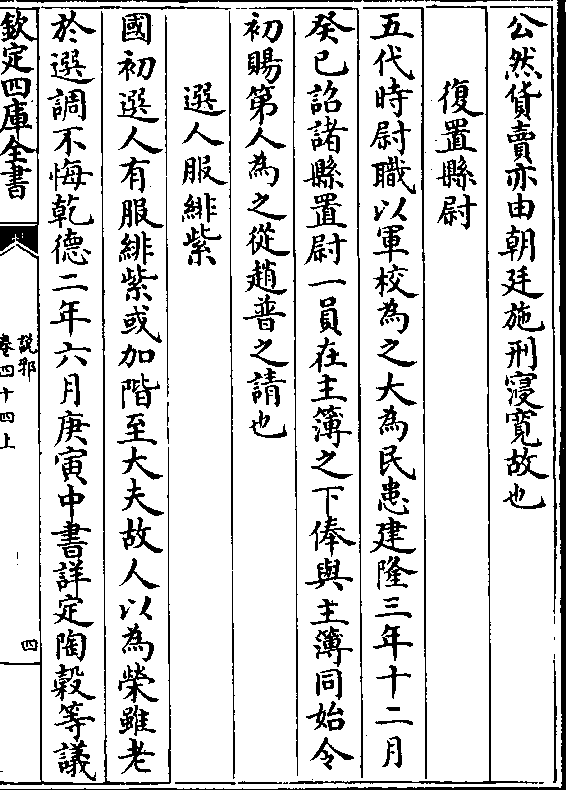 公然貨賣亦由朝廷施刑寖寛故也
復置縣尉
五代時尉職以軍校為之大為民患建隆三年十二月
癸巳詔諸縣置尉一員在主簿之下俸與主簿同始令
初賜第人為之從趙普之請也
選人服緋紫
國初選人有服緋紫或加階至大夫故人以為榮雖老
於選調不悔乾德二年六月庚寅中書詳定陶穀等議
欽定四庫全書
說郛
卷四十四上
四